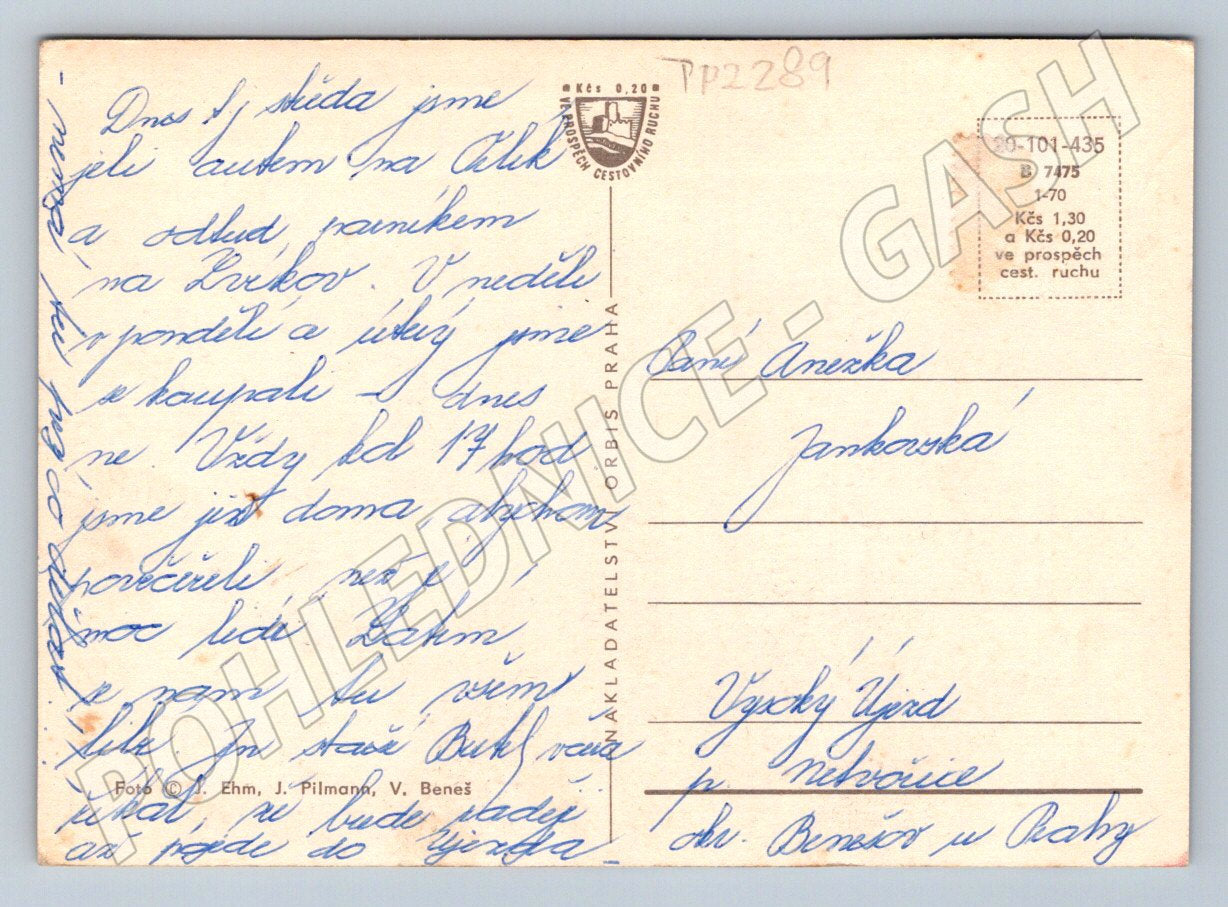 Dnes tj středa jsme
jeli autem na Orlík
a odtud parníkem
na Zvíkov. V neděli
v pondělí a úterý jsme
se koupali – dnes
ne. Vždy kol 17 hod
jsme již doma, abychom
povečeřeli než je
moc lidí. Zatím
se nám tu všem
líbí. Jen staří
říkal, že bude raději
až pojede do Újezda
TP2289
Kčs 0,20
VE PROSPĚCH CESTOVNÍHO RUCHU
20-101-435
B 7475
1-70
Kčs 1,30
a Kčs 0,20
ve prospěch
cest. ruchu
NAKLADATELSTVÍ ORBIS PRAHA
Paní Anežka
Jankovská
Vysoký Újezd
p. Netvořice
okr. Benešov u Prahy
Foto © J. Ehm, J. Pilmann, V. Beneš
POHLEDNICE - GASH